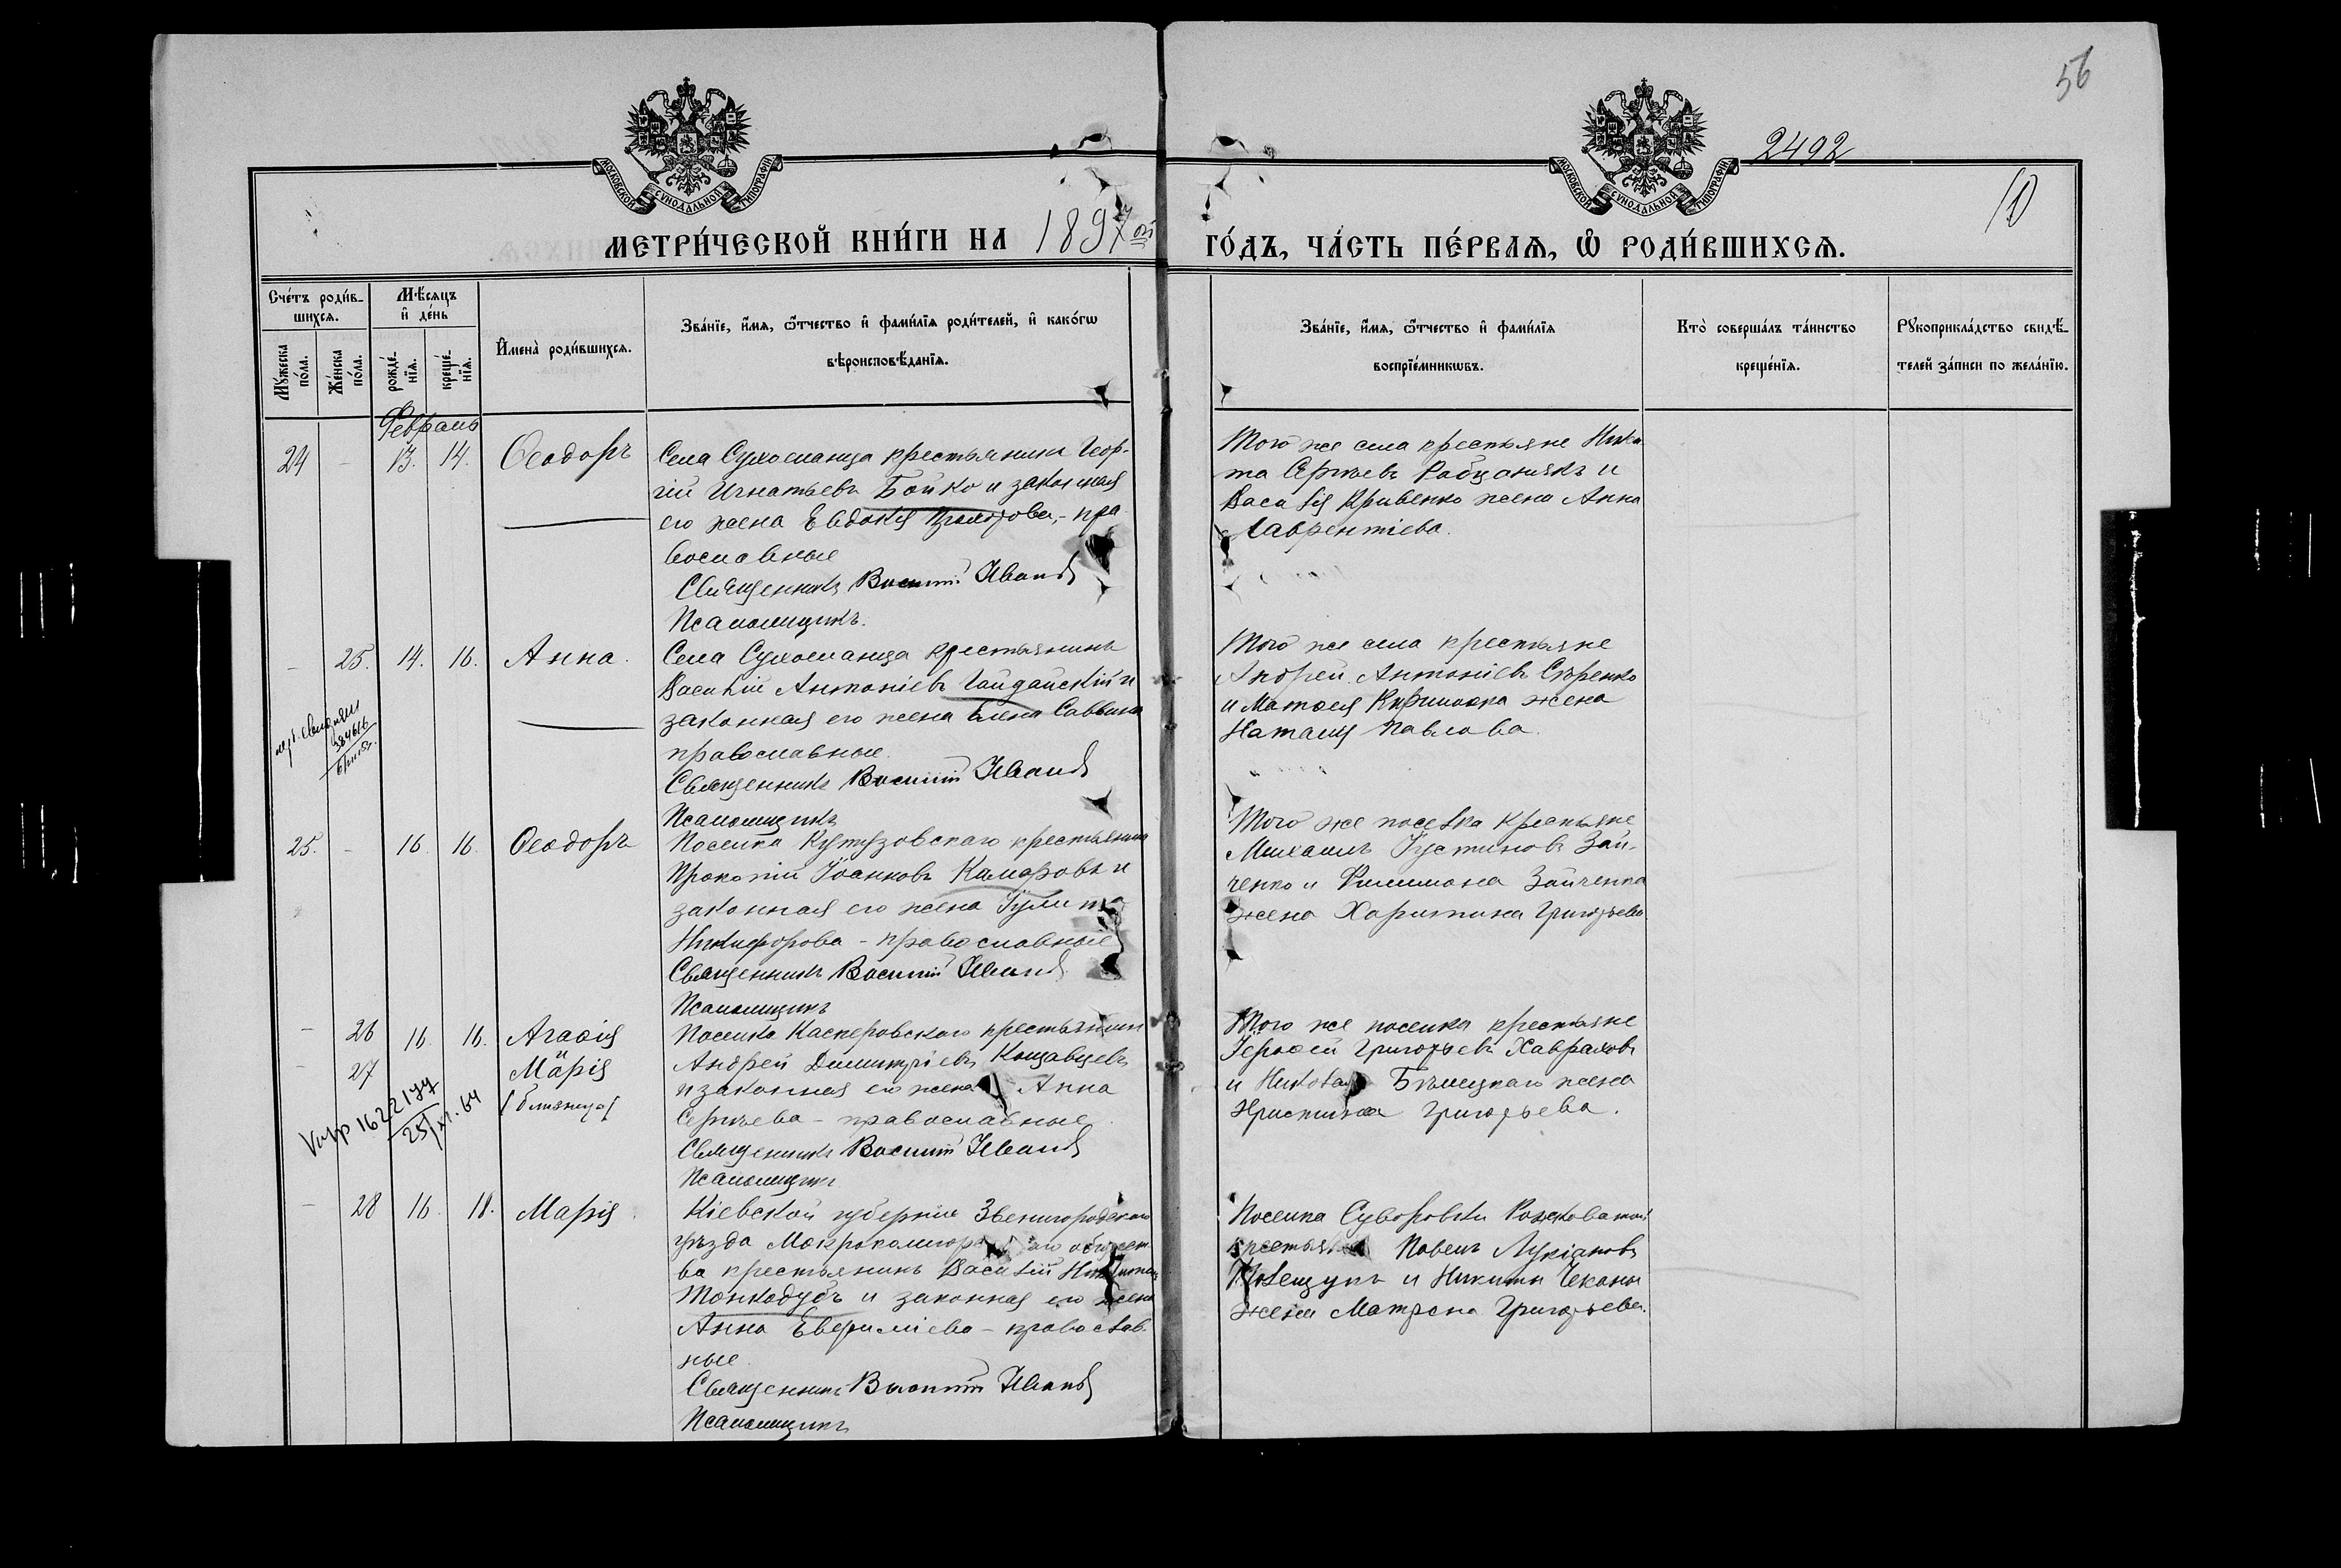 56
2492
10
МОСКОВСКОЙ СУНОДАЛЬНОЙ ТИПОГРАФІИ
МОСКОВСКОЙ СУНОДАЛЬНОЙ ТИПОГРАФІИ
МЕТРИ́ЧЕСКОЙ КНИ́ГИ НА 1897ой ГО́ДЪ, ЧА́СТЬ ПЕ́РВАЯ, Ѡ РОДИ́ВШИХСЯ.
Сче́тъ роди́в-
шихся.
Му́жеска
по́ла.
Же́нска
по́ла.
Мѣ́сяцъ
и де́нь
рожде́-
нїя.
креще́-
нїя.
Имена̀ роди́вшихся.
Зва́нїе, и́мя, ѻ҆́тчество и фами́лїя роди́телей, и како́гѡ
вѣроисповѣ́данїя.
Зва́нїе, и́мя, ѻ҆́тчество и фами́лїя
воспрїе́мникѡвъ.
Кто̀ соверша́лъ та́инство
креще́нїя.
Рꙋкоприкла́дство свидѣ́-
телей за́писи по жела́нїю.
Февраль
24 - 13. 14. Ѳеодоръ
Села Сухоеланца крестьянинъ Геор-
гій Игнатьевъ Бойко и законная
его жена Евдокія - пра
вославные
Священникъ Василій Иванов
Псаломщикъ.
Того же села крестьяне Ники
та Сергѣевъ и
Василія Кривенко жена Анна
Лаврентіева.
- 25. 14. 16. Анна.
Села Сухоеланца крестьянинъ
Василій Антоніевъ Гайдайскій и
законная его жена Елена Саввина
православные.
Священникъ Василій Иванов
Псаломщикъ
Того же села крестьяне
Андрей Антоніевъ
и Матѳея жена
Наталія Павлова.
25. - 16 16. Ѳеодоръ
Поселка Кутузовскаго крестьянинъ
Прокопій Іоанновъ Камаровъ и
законная его жена Іулита
Никифорова - православные
Священникъ Василій Иванов
Псаломщикъ
Того же поселка крестьяне
Михаилъ Іустиновъ Зай-
ченко и Филимона Зайченка
жена Харитина Григорьева
- 26 16. 16. Агаѳія
- 27 и Марія
(близнецы)
1622177
25/XI.64
Поселка Касперовскаго крестьянинъ
Андрей Димитріевъ Кощавцевъ
и законная его жена Анна
Сергѣева - православные
Священникъ Василій Иванов
Псаломщикъ
Того же поселка крестьяне
Іероѳей Григорьевъ
и Николая Бѣлецкаго жена
Христина Григорьева.
- 28 16. 18. Марія
Кіевской губерніи Звенигородскаго
уѣзда общест
ва крестьянинъ Василій
Тонкодубъ и законная его жена
Анна Евфиміева - православ
ные
Священникъ Василій Иванов
Псаломщикъ
Поселка Суворовки
Павелъ Лукіановъ
и Никиты Чекана
жена Матрона Григорьева.